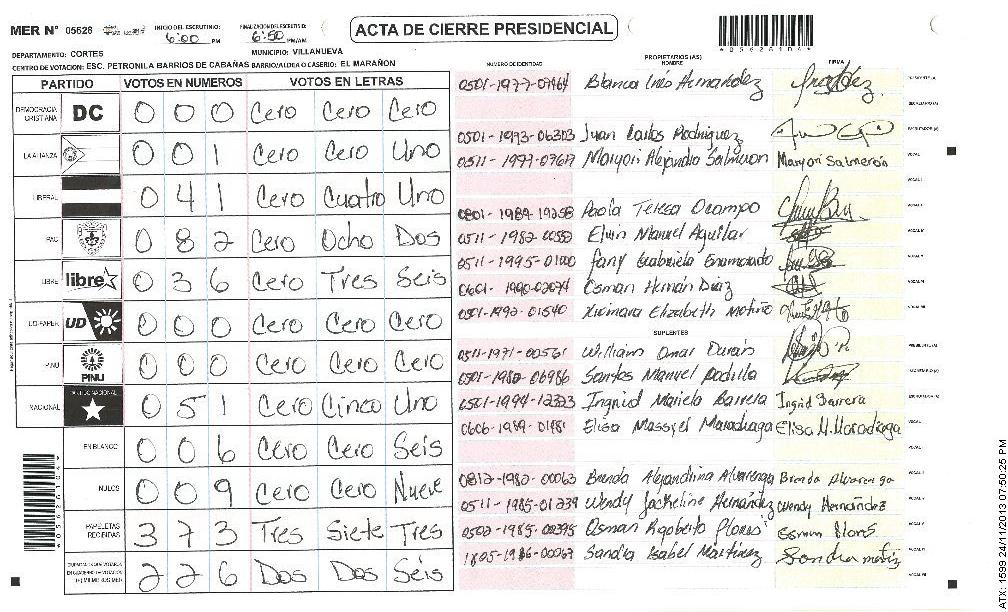 MER Nº 05628 INICIO DEL ESCRUTINIO: 6:00 PM FINALIZACION ESCRUTINIO: 6:50 PM/AM ACTA DE CIERRE PRESIDENCIAL
*05628104*
DEPARTAMENTO: CORTES MUNICIPIO: VILLANUEVA
CENTRO DE VOTACION: ESC. PETRONILA BARRIOS DE CABAÑAS BARRIO/ALDEA O CASERIO: EL MARAÑON
PARTIDO VOTOS EN NUMEROS VOTOS EN LETRAS
DEMOCRACIA CRISTIANA DC 0 0 0 Cero Cero Cero
LA ALIANZA 0 0 1 Cero Cero Uno
LIBERAL 0 4 1 Cero Cuatro Uno
PAC 0 8 2 Cero Ocho Dos
LIBRE libre 0 3 6 Cero Tres Seis
UD-FAPER UD 0 0 0 Cero Cero Cero
PINU PINU 0 0 0 Cero Cero Cero
NACIONAL PARTIDO NACIONAL 0 5 1 Cero Cinco Uno
EN BLANCO 0 0 6 Cero Cero Seis
NULOS 0 0 9 Cero Cero Nueve
PAPELETAS RECIBIDAS 3 7 3 Tres Siete Tres
2 2 6 Dos Dos Seis
NUMERO DE IDENTIDAD PROPIETARIOS (AS) NOMBRE FIRMA
0501-1977-07464 Blanca Inés Hernandez PRESIDENTE (A)
0501-1993-06303 Juan Carlos Rodriguez
0511-1977-07617 Maryori Alejandra Salmeron Maryori Salmerón VOCAL I
0801-1989-19258 Paola Teresa Ocampo
0511-1982-00552 Elvin Manuel Aguilar
0511-1995-01100 Fany Gabriela Enamorado
0601-1990-02074 Osman Hernán Diaz
0501-1992-01540 Xiomara Elizabeth Motiño
SUPLENTES
0511-1971-00561 William Omar Durán
0501-1982-06986 Santos Manuel Padilla
0501-1994-12323 Ingrid Mariela Barrera Ingrid Barrera
0606-1989-01481 Elisa Massyel Maradiaga Elisa M. Maradiaga
0812-1982-00063 Brenda Alejandrina Alvarenga Brenda Alvarenga
0511-1985-01239 Wendy Jackeline Hernández Wendy Hernández
0502-1985-00395 Osman Rigoberto Flores Osman Flores
1805-1986-00067 Sandra Isabel Martinez
ATX: 1599 24/11/2013 07:50:25 PM